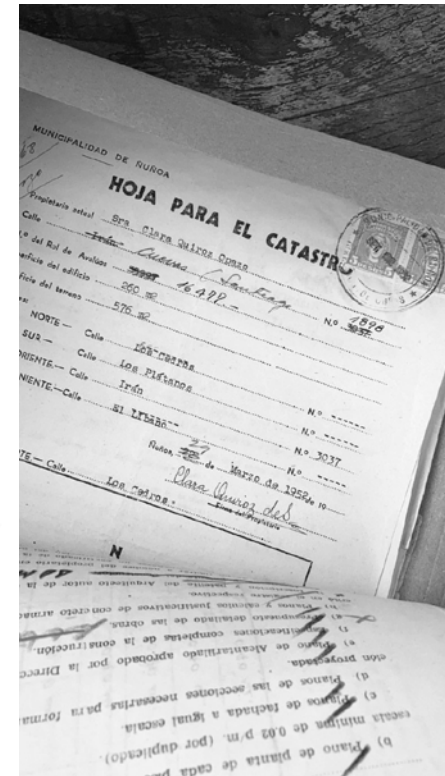 MUNICIPALIDAD DE ÑUÑOA
HOJA PARA EL CATASTRO
Propietario actual Sra Clara Quiros Opazo
Calle Irán Cuevas / Santiago N.º 3037 1898
.º del Rol de Avalúos 16499.-
erficie del edificio 260 m2
ficie del terreno 576 m2
NORTE — Calle Los Cedros N.º ------
SUR — Calle Los Plátanos N.º ------
ORIENTE. — Calle Irán N.º 3037
NIENTE. — Calle El Líbano-- N.º ------
Ñuñoa, 27 de Marzo de 1952 de 19
Clara Quiroz de S.
Firma del Propietario
TE. — Calle Los Cedros.
N
b) Plano de planta de cada
escala mínima de 0.02 p/m. (por duplicado).
c) Planos de fachada a igual escala.
d) Planos de las secciones necesarias para forma
ción proyectada.
e) Plano de Alcantarillado aprobado por la Direcc
f) Especificaciones completas de la construcción.
g) Presupuesto detallado de las obras.
h) Planos y cálculos justificativos de concreto armad